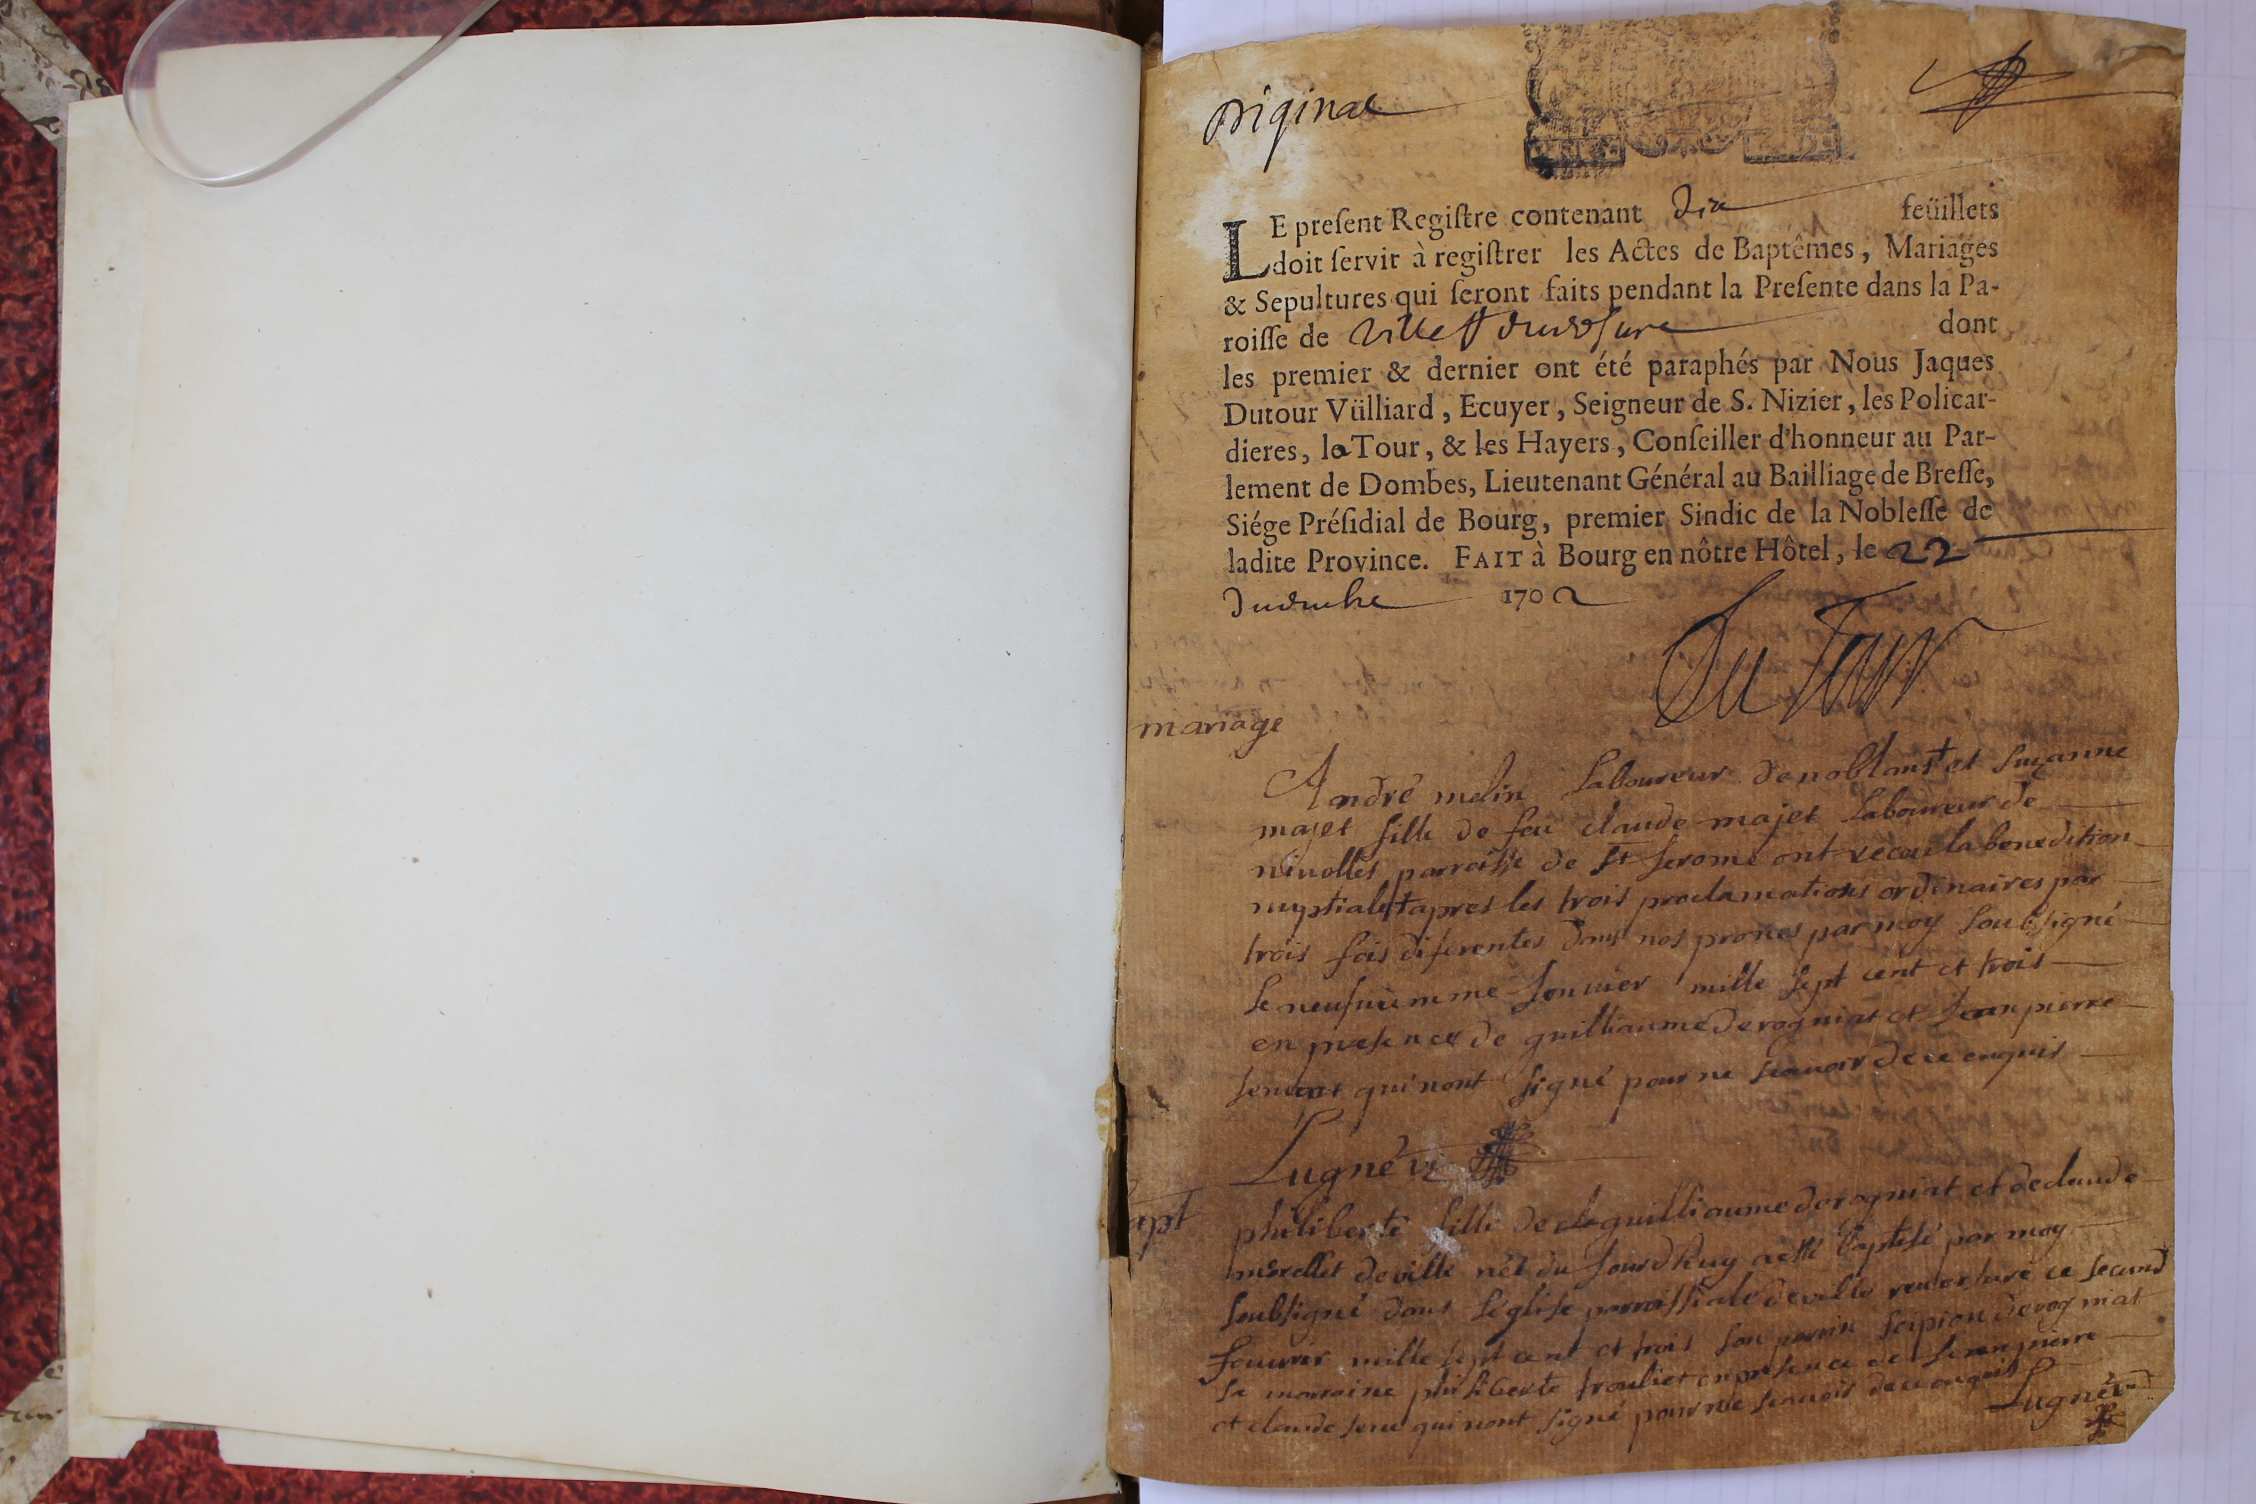 original
LE preſent Regiſtre contenant dix feüillets
doit ſervir à regiſtrer les Actes de Baptêmes, Mariages
& Sepultures qui ſeront faits pendant la Preſente dans la Pa-
roiſſe de ville
dont
les premier & dernier ont été paraphés par Nous Jaques
Dutour Vülliard, Ecuyer, Seigneur de S. Nizier, les Policar-
dieres, la Tour, & les Hayers, Conſeiller d'honneur au Par-
lement de Dombes, Lieutenant Général au Bailliage de Breſſe,
Siége Préſidial de Bourg, premier Sindic de la Nobleſſe de
ladite Province. FAIT à Bourg en nôtre Hôtel, le 22
1702
Du Tour
mariage
André melin laboureur de noblans et suzanne
majet fille de feu claude majet laboureur de
nivolles parroisse de st Jerome ont recou la benedition
nuptiale apres les trois proclamations ordinaires par
trois fois diferentes dans nos prones par moy soubsigné
le neufuiemme Januier mille sept cent et trois
en presence de guilliaume derogniat et Jean pierre
qui nont signé pour ne scauoir de ce enquis
Lugné
apt
philiberte fille de guilliaume derogniat et de claude
morellet de ville du Jourdhuy baptisé par moy
soubsigné dans l'eglise parroissiale de ville reuersure ce second
mille sept cent et trois son parrin scipion derogniat
sa marraine philiberte en presence de Jean pierre
et claude qui nont signé pour ne scauoir de ce enquis
Lugné